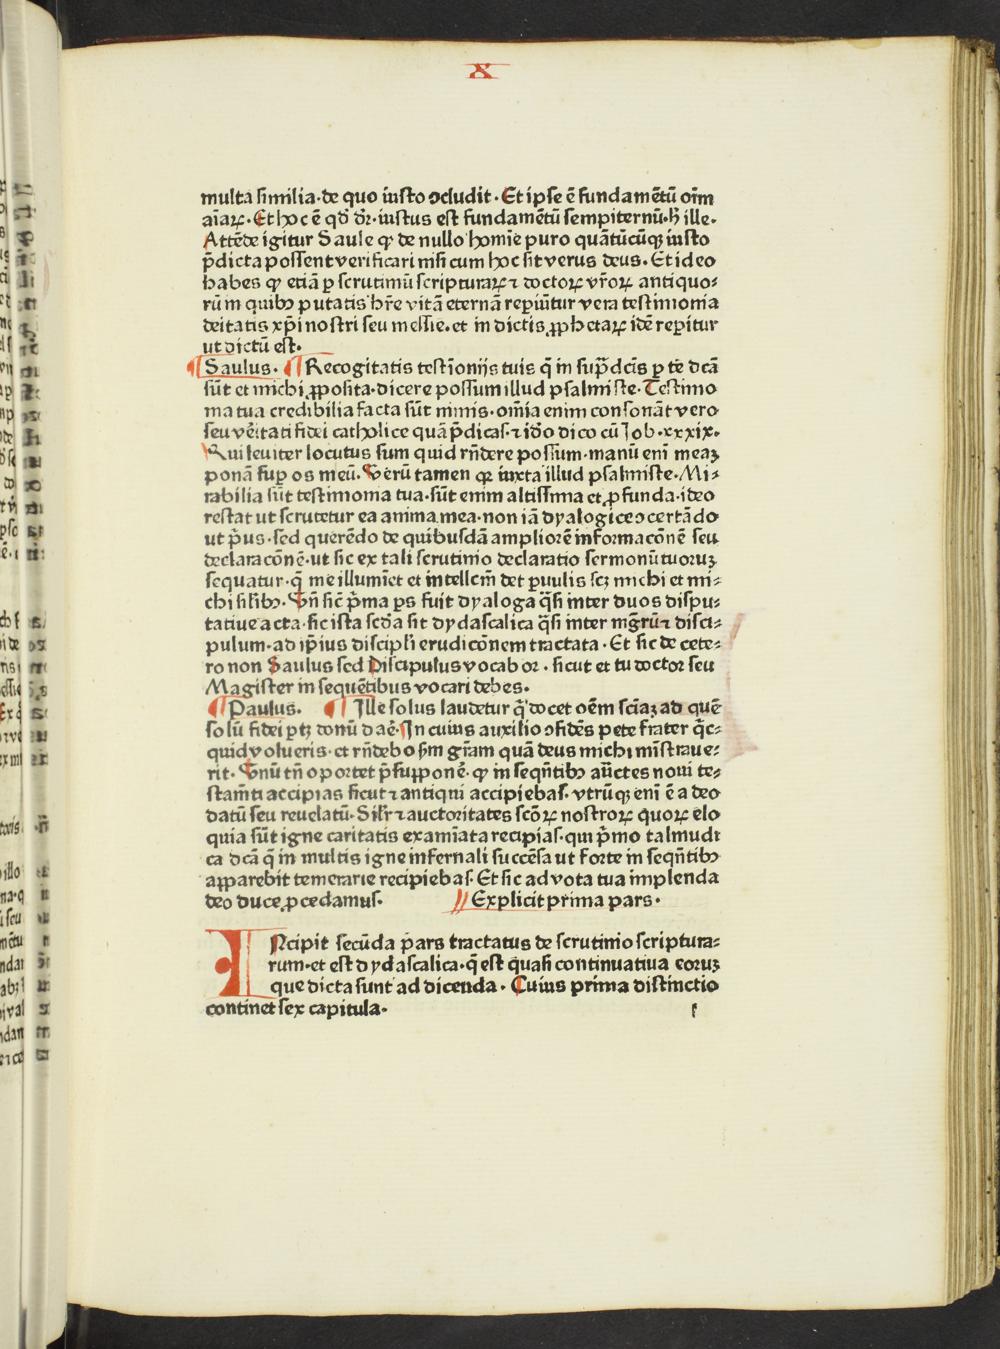 X
multa similia·de quo iusto ꝯcludit·Et ipse ē fundamētū oīm
aīaꝝ·Et hoc ē qd̄ dr̄·iustus est fundamētū sempiternū·h̄ ille·
Attēde igitur Saule ꝙ de nullo homīe puro quātūcūqꝫ iusto
p̄dicta possent verificari nisi cum hoc sit verus deus·Et ideo
habes ꝙ etiā ꝑ scrutiniū scripturaꝝ ⁊ doctoꝝ vr̄oꝝ antiquo⸗
rū in quibꝫ putatis hr̄e vitā eternā reꝑiūtur vera testimonia
deitatis xp̄i nostri seu messie·et in dictis ꝓphetaꝝ idē reꝑitur
ut dictū est·
Saulus· Recogitatis testīonijs tuis q̄ in sup̄dcīs ꝑ te dcā
sūt et michi ꝓposita·dicere possum illud psalmiste·Testimo
nia tua credibilia facta sūt nimis·om̄ia enim consonāt vero
seu vēitati fidei catholice quā p̄dicas·⁊ iđo dico cū Job·xxxix·
Qui leuiter locutus sum quid rn̄dere possum·manū enī meaꝫ
ponā suꝑ os meū·Verū tamen qꝫ iuxta illud psalmiste·Mi⸗
rabilia sūt testimonia tua·sūt enim altissima et ꝓfunda·ideo
restat ut scrutetur ea anima mea·non iā dyalogice ꝯcertādo
ut p̄us·sed querēdo de quibusdā ampliorē informacōnē seu
declaracōnē·ut sic ex tali scrutinio declaratio sermonū tuoruꝫ
sequatur·q̄ me illumīet et intellcm̄ det ꝑuulis scꝫ michi et mi⸗
chi silibꝫ·Vn̄ sic̄ p̄ma ꝑs fuit dyaloga q̄si inter duos dispu⸗
tatiue acta·sic ista scđa sit dydascalica q̄si inter mgr̄ū ⁊ disci⸗
pulum·ad ip̄ius discipli erudicōnem tractata·Et sic de cete⸗
ro non Saulus sed Discipulus vocabor·sicut et tu doctor seu
Magister in sequētibus vocari debes·
Paulus· Ille solus laudetur q̄ docet oēm sciaꝫ ad quē
solū fidei ꝑtꝫ donū daē·In cuius auxilio ꝯfidēs pete frater q̄c⸗
quid volueris·et rn̄debo sm̄ gr̄am quā deus michi mīstraue⸗
rit·Vnū tn̄ oportet p̄supponē·ꝙ in seqn̄tibꝫ au̅ctes noui te⸗
stam̄ti accipias sicut ⁊ antiqui accipiebas·vtrūqꝫ enī ē a deo
datū seu reuelatū·Silr̄ ⁊ auctoritates scōꝝ nostroꝝ quoꝝ elo
quia sūt igne caritatis examīata recipias·qui p̄mo talmudi
ca dcā q̄ in multis igne infernali succēsa ut forte in seqn̄tibꝫ
apparebit temerarie recipiebas·Et sic ad vota tua implenda
deo duce ꝓcedamus·    Explicit prima pars·
INcipit secūda p̄ars tractatus de scrutinio scriptura⸗
rum·et est dydascalica·q̄ est quasi continuatiua eoruꝫ
que dicta sunt ad dicenda·Cuius prima distinctio
continet sex capitula·